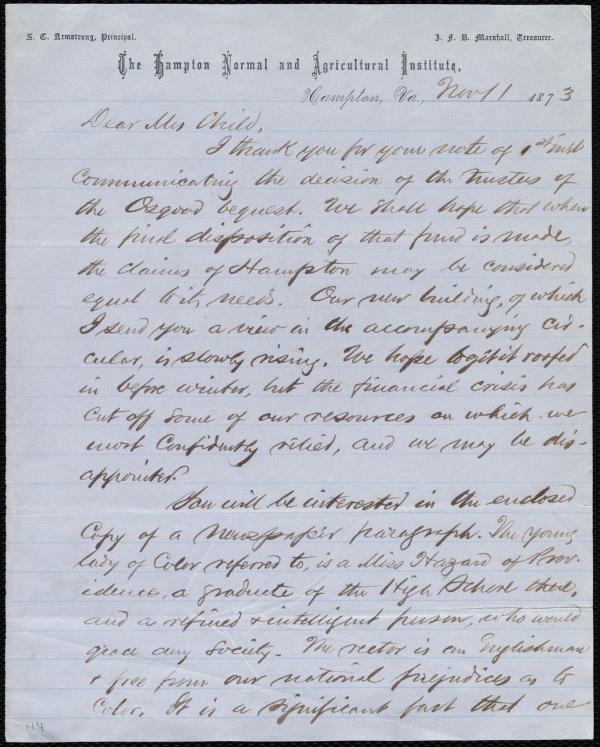 S. C. Armstrong, Principal. J. F. B. Marshall, Treasurer.
The Hampton Normal and Agricultural Institute,
Hampton, Va., Nov 11 1873
Dear Mrs Child,
I thank you for your note of 1st inst
communicating the decision of the Trustees of
the Osgood bequest. We shall hope that when
the final disposition of that fund is made,
the claims of Hampton may be considered
equal to its needs. Our new building, of which
I send you a view in the accompanying cir-
cular, is slowly rising. We hope to get it roofed
in before winter, but the financial crisis has
cut off some of our resources on which we
most confidently relied, and we may be dis-
appointed.
You will be interested in the enclosed
copy of a newspaper paragraph. The young
lady of Color referred to, is a Miss Hazard of Prov-
idence, a graduate of the High School there,
and a refined & intelligent person, who would
grace any society. The rector is an Englishman
& free from our national prejudices as to
Color. It is a significant fact that one
114